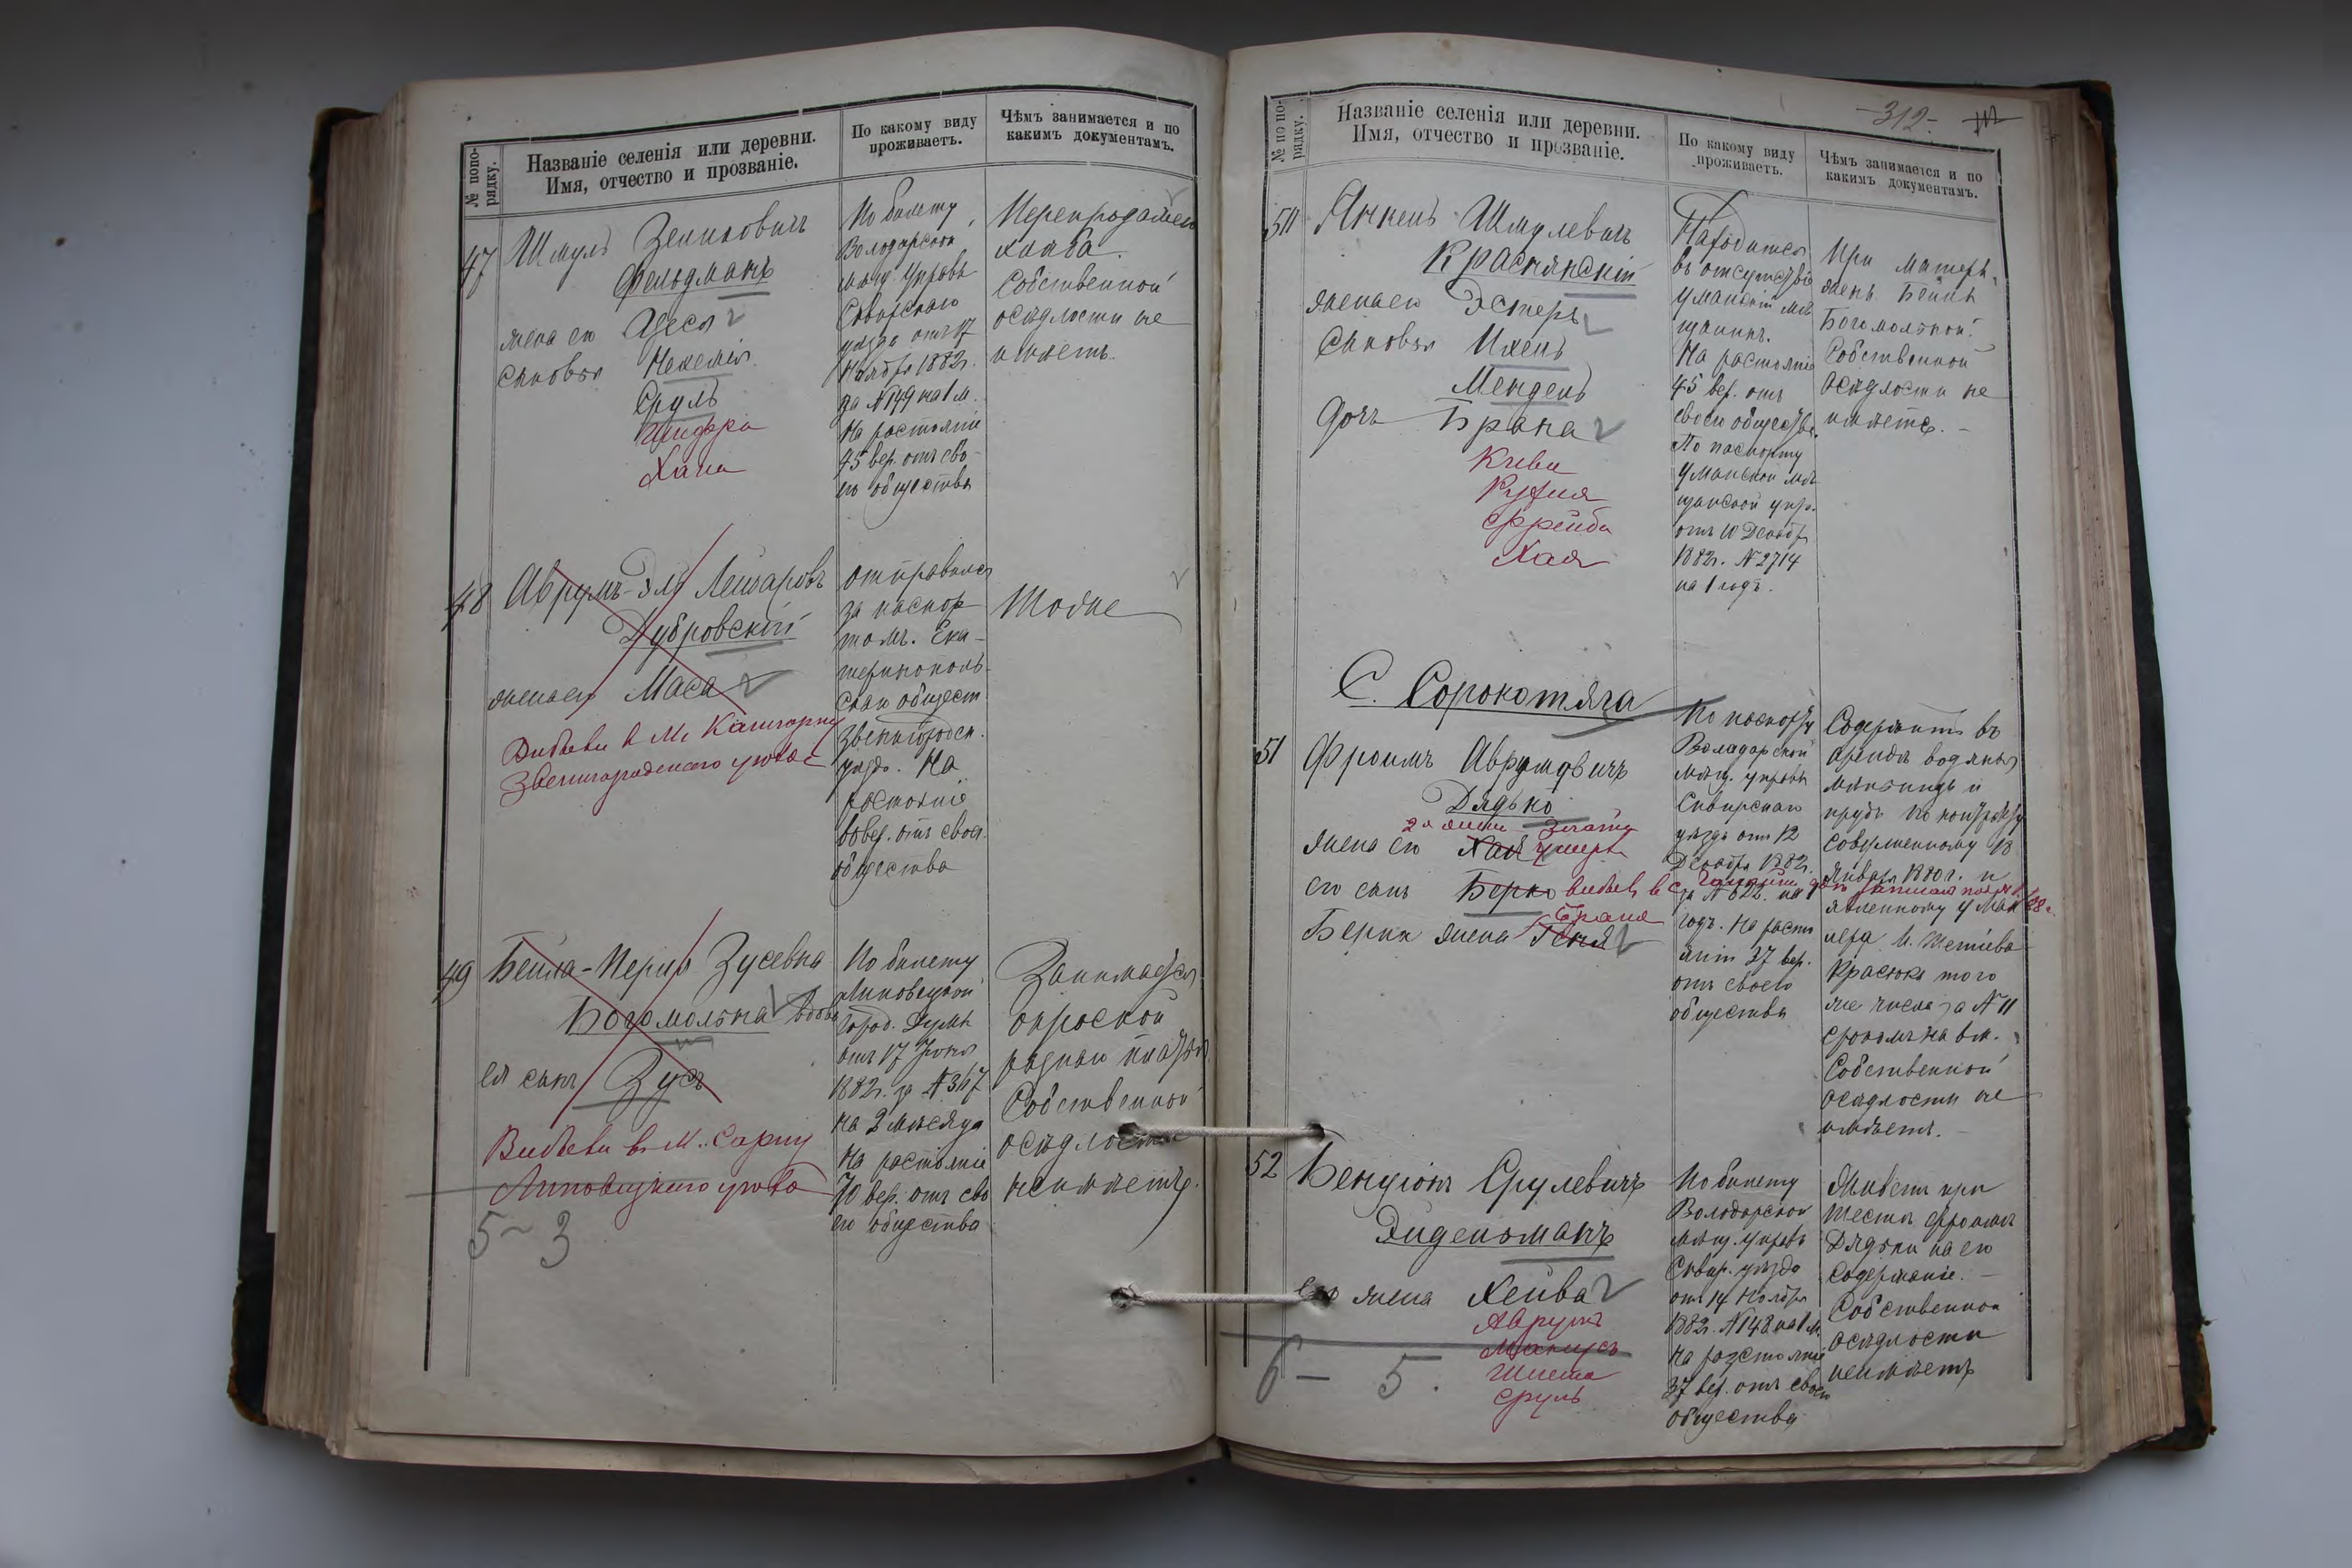 № попо-
рядку.
Названіе селенія или деревни.
Имя, отчество и прозваніе.
По какому виду
проживаетъ.
Чѣмъ занимается и по
какимъ документамъ.
47
Шмуль
Фельдманъ
жена его
сыновья Нехемія
Сруль
Шифра
Хана
По билету
Володарской
мѣщ. Управы
Сквирскаго
уѣзда отъ 17
Ноября 1882 г.
за № 149 на 1 м.
На растояніи
45 вер. отъ сво-
его общества
хлѣба.
Собственной
осѣдлости не
имѣетъ.
48
Аврумъ-Эль Лейзаровъ
Дубровскій
жена его Маса
Звенигородскаго уѣзда
отправился
за паспор
томъ. Ека-
теринополь-
скаго общест.
Звенигородск.
уѣзда. На
растояніе
вер. отъ своя.
общества
Тоже
49
Бейла-Перля Зусевна
Богомольна вдова
ея сынъ Зусь
Выбыли въ М. Сарны
Липовецкаго уѣзда
5 - 3
По билету
Липовецкой
Город. Думы
отъ 17 Іюня
1882 г. за № 367
на 2 мѣсяца
На растояніе
70 вер. отъ сво
его общества
Занимается
окраской
разнаго платья
Собственной
осѣдлости
не имѣетъ.
№ по по-
рядку.
Названіе селенія или деревни.
Имя, отчество и прозваніе.
По какому виду
проживаетъ.
Чѣмъ занимается и по
какимъ документамъ.
-312-
50
Янкель Шмулевичъ
Краснянскій
жена его Эстеръ
Сыновья Ихель
Мендель
дочь Брана
Фрейда
Хая
Находится
въ отсутствіе
Уманскій мѣ
щанинъ.
На растояніе
45 вер. отъ
своего общества.
По паспорту
Уманской мѣ
щанской упр.
отъ 10 Декабр
1882 г. № 2714
на 1 годъ.
При матери
жены Бейлѣ
Богомольной.
Собственной
осѣдлости не
имѣетъ. -
С. Сорокотяга
51
Фроимъ Аврумовичъ
Дядько
2я жена Злата
жена его Хая умерла
его сынъ Берко
Берка жена Геня
Брана
По паспорту
Володарской
мѣщ. управы
Сквирскаго
уѣзда отъ 12
Декабря 1882 г.
за № 822 на 1
годъ. На расто
яніи 37 вер.
отъ своего
общества
Содержитъ въ
арендѣ водяную
мельницу и
прудъ по контракту
совершенному 18
Января 1880 г. и
явленному у
того
же числа за № 11
срокомъ на 6 л.
Собственной
осѣдлости не
имѣетъ. -
52
Бенціонъ Срулевичъ
Эйдельманъ
его жена Хейва
Аврумъ
Сруль
6 - 5.
По билету
Володарской
мѣщ. управы
Сквир. уѣзда
отъ 14 Ноября
1882 г. № 148 на 1 м.
На разстояніе
37 вер. отъ своего
общества
Живетъ при
тестѣ Фроимѣ
Дядьки на его
содержаніе. -
Собственной
осѣдлости
неимѣетъ